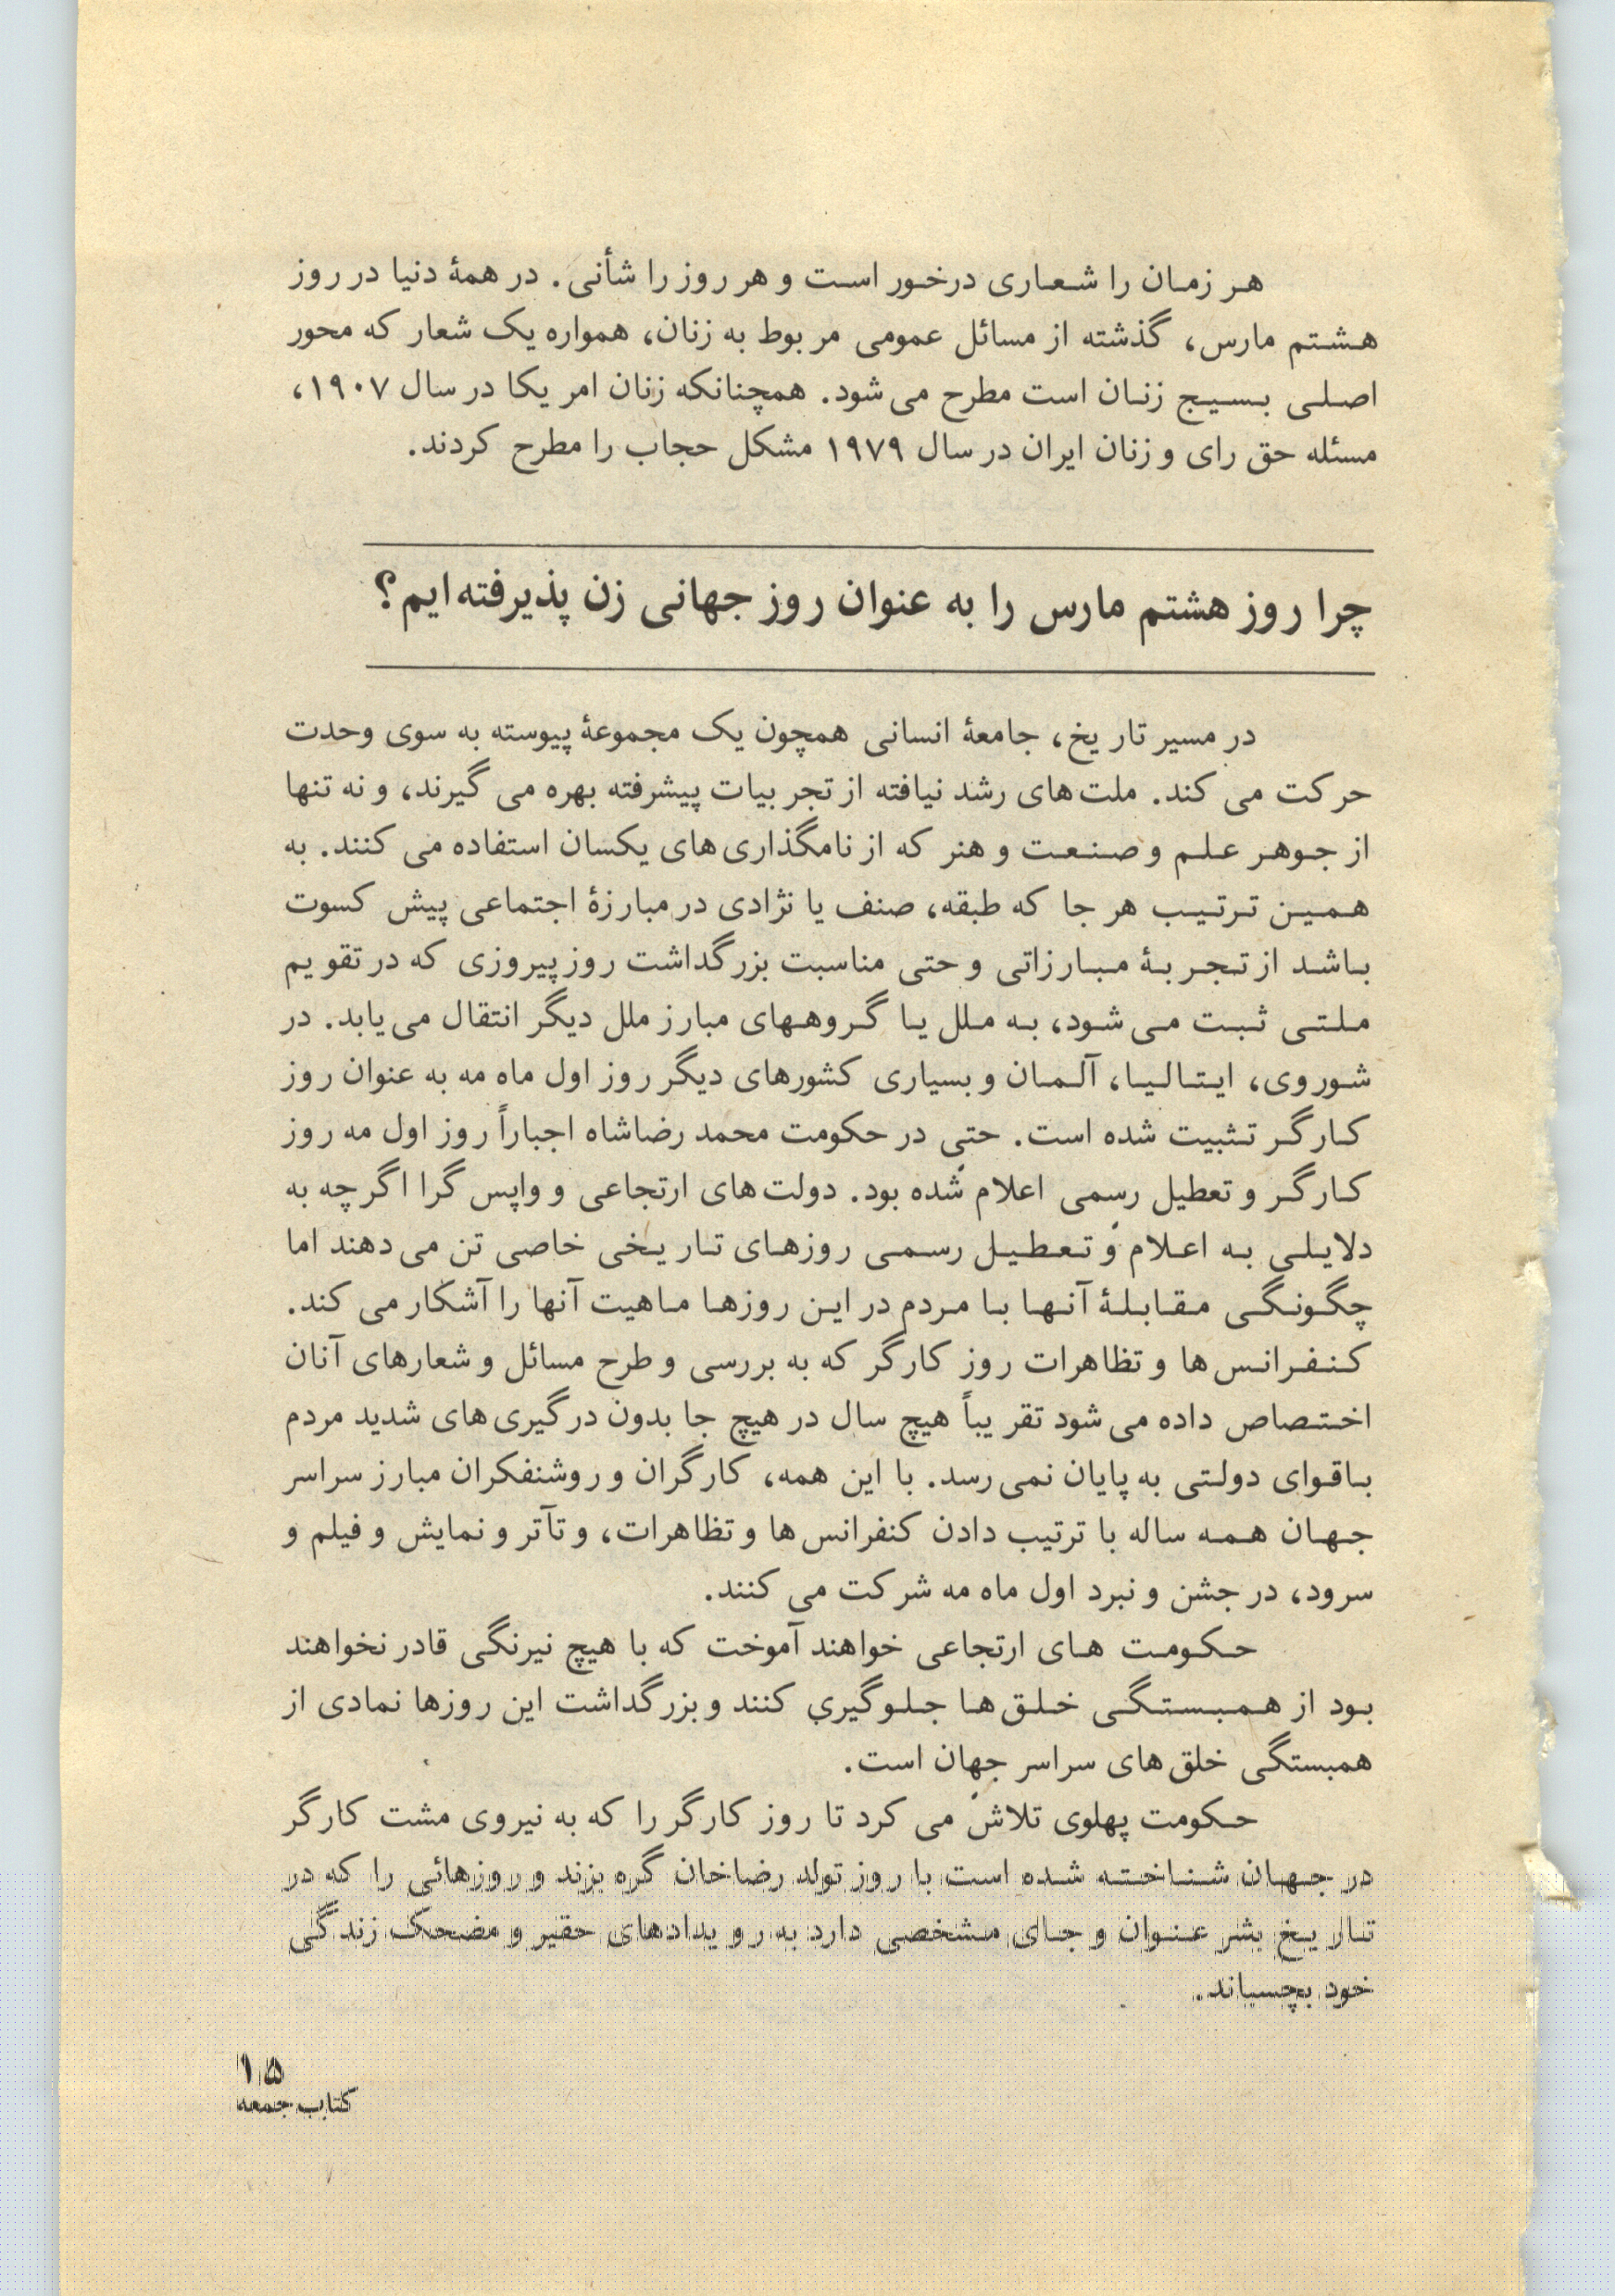 هر زمان را شعاری درخور است و هر روز را شأنی. در همهٔ دنیا در روز
هشتم مارس، گذشته از مسائل عمومی مربوط به زنان، همواره یک شعار که محور
اصلی بسیج زنان است مطرح می‌شود. همچنانکه زنان امریکا در سال ۱۹۰۷،
مسئله حق رای و زنان ایران در سال ۱۹۷۹ مشکل حجاب را مطرح کردند.
چرا روز هشتم مارس را به عنوان روز جهانی زن پذیرفته‌ایم؟
در مسیر تاریخ، جامعهٔ انسانی همچون یک مجموعهٔ پیوسته به سوی وحدت
حرکت می‌کند. ملت‌های رشد نیافته از تجربیات پیشرفته بهره می‌گیرند، و نه تنها
از جوهر علم و صنعت و هنر که از نامگذاری‌های یکسان استفاده می‌کنند. به
همین ترتیب هر جا که طبقه، صنف یا نژادی در مبارزهٔ اجتماعی پیش کسوت
باشد از تجربهٔ مبارزاتی و حتی مناسبت بزرگداشت روز پیروزی که در تقویم
ملتی ثبت می‌شود، به ملل یا گروههای مبارز ملل دیگر انتقال می‌یابد. در
شوروی، ایتالیا، آلمان و بسیاری کشورهای دیگر روز اول ماه مه به عنوان روز
کارگر تثبیت شده است. حتی در حکومت محمد رضاشاه اجباراً روز اول مه روز
کارگر و تعطیل رسمی اعلام شده بود. دولت‌های ارتجاعی و واپس گرا اگر چه به
دلایلی به اعلام و تعطیل رسمی روزهای تاریخی خاصی تن می‌دهند اما
چگونگی مقابلهٔ آنها با مردم در این روزها ماهیت آنها را آشکار می‌کند.
کنفرانس‌ها و تظاهرات روز کارگر که به بررسی و طرح مسائل و شعارهای آنان
اختصاص داده می‌شود تقریباً هیچ سال در هیچ جا بدون درگیری‌های شدید مردم
باقوای دولتی به پایان نمی‌رسد. با این همه، کارگران و روشنفکران مبارز سراسر
جهان همه ساله با ترتیب دادن کنفرانس‌ها و تظاهرات، و تآتر و نمایش و فیلم و
سرود، در جشن و نبرد اول ماه مه شرکت می‌کنند.
حکومت های ارتجاعی خواهند آموخت که با هیچ نیرنگی قادر نخواهند
بود از همبستگی خلق‌ها جلوگیری کنند و بزرگداشت این روزها نمادی از
همبستگی خلق‌های سراسر جهان است.
حکومت پهلوی تلاش می‌کرد تا روز کارگر را که به نیروی مشت کارگر
در جهان شناخته شده است با روز تولد رضاخان گره بزند و روزهائی را که در
تاریخ بشر عنوان و جای مشخصی دارد به رویدادهای حقیر و مضحک زندگی
خود بچسباند.
۱۵
کتاب جمعه